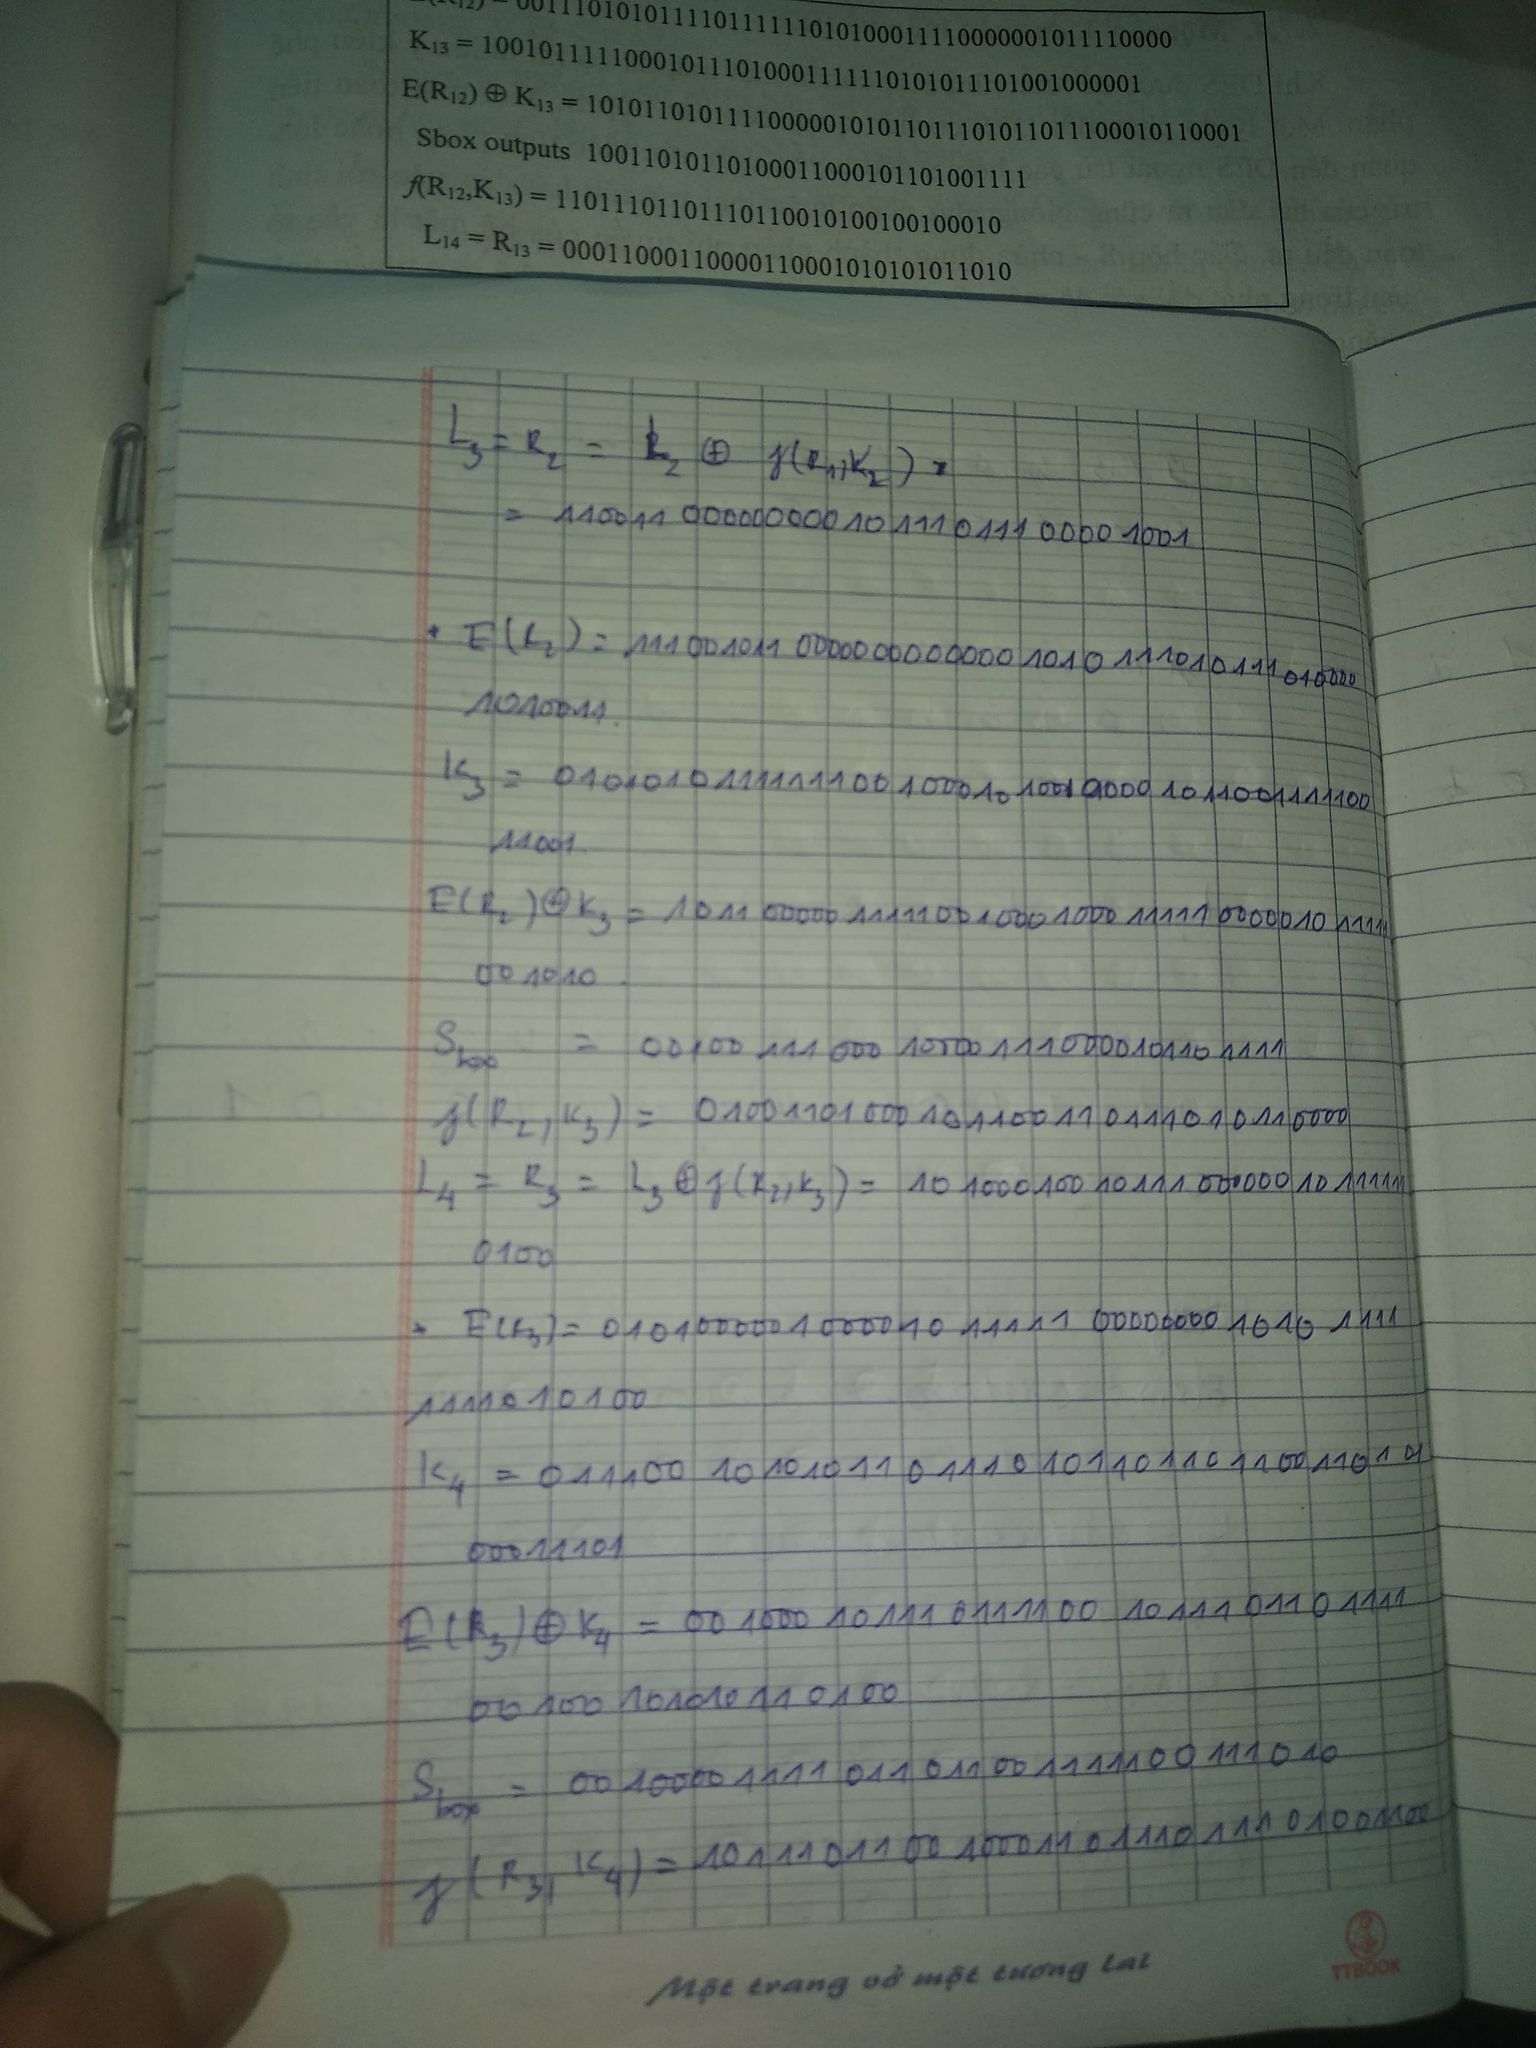 E(R₁₂) = 001110101011110111111010100011110000001011110000
K₁₃ = 100101111100010111010001111110101011101001000001
E(R₁₂) ⊕ K₁₃ = 101011010111100000101011011101011011100010110001
Sbox outputs 10011010110100011000101101001111
f(R₁₂,K₁₃) = 11011101101110110010100100100010
L₁₄ = R₁₃ = 00011000110000110001010101011010
L₃ = R₂ = L₂ ⊕ f(R₁,K₂) =
= 11001100000000010111011100001001
* E(R₂) = 11100101100000000000001010111010111010000
1010011.
K₃ = 0101010111111100100010100100001011001111100
11001.
E(R₂) ⊕ K₃ = 10110000011111001000100011111000001011111
001010.
Sbox = 00100111000100001110000101101111
f(R₂,K₃) = 01001101000101100110111010110000
L₄ = R₃ = L₃ ⊕ f(R₂,K₃) = 1010001001011100000010111111
0100
* E(R₃) = 01010000010000101111100000000101011 11
1111010100
K₄ = 0111001010101101110101101101100110101
00011101
E(R₃) ⊕ K₄ = 001000101110111110010111011011 11
00100101010110100
Sbox = 00100001111101101100111110011 1010
f(R₃,K₄) = 10111011001000110111011101001100
Một trang vở một tương lai
TTBOOK